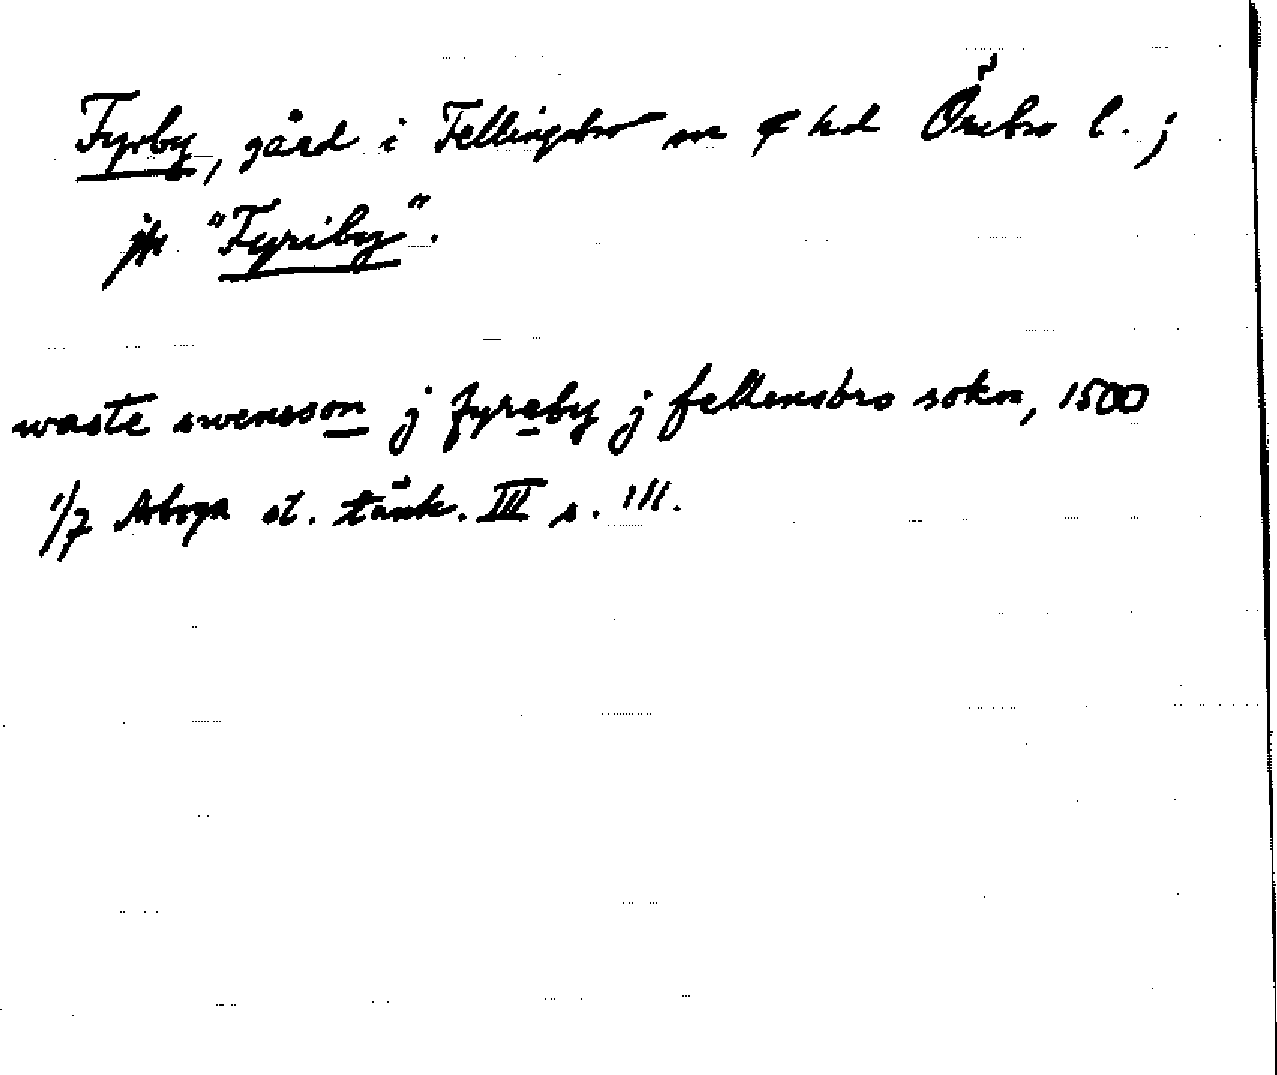 Fyrby, gård i Fellingsbro sn o hd Örebro l. ;
jfr "Fyriby".
waste swensson j fyraby j fellensbro sokn, 1500
1/7 Arboga st. tänk. III s. 111.